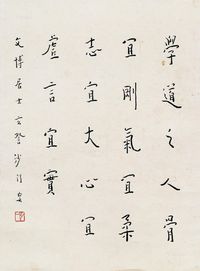 學道之人骨
宜剛氣宜柔
志宜大心宜
虛言宜實
文博居士